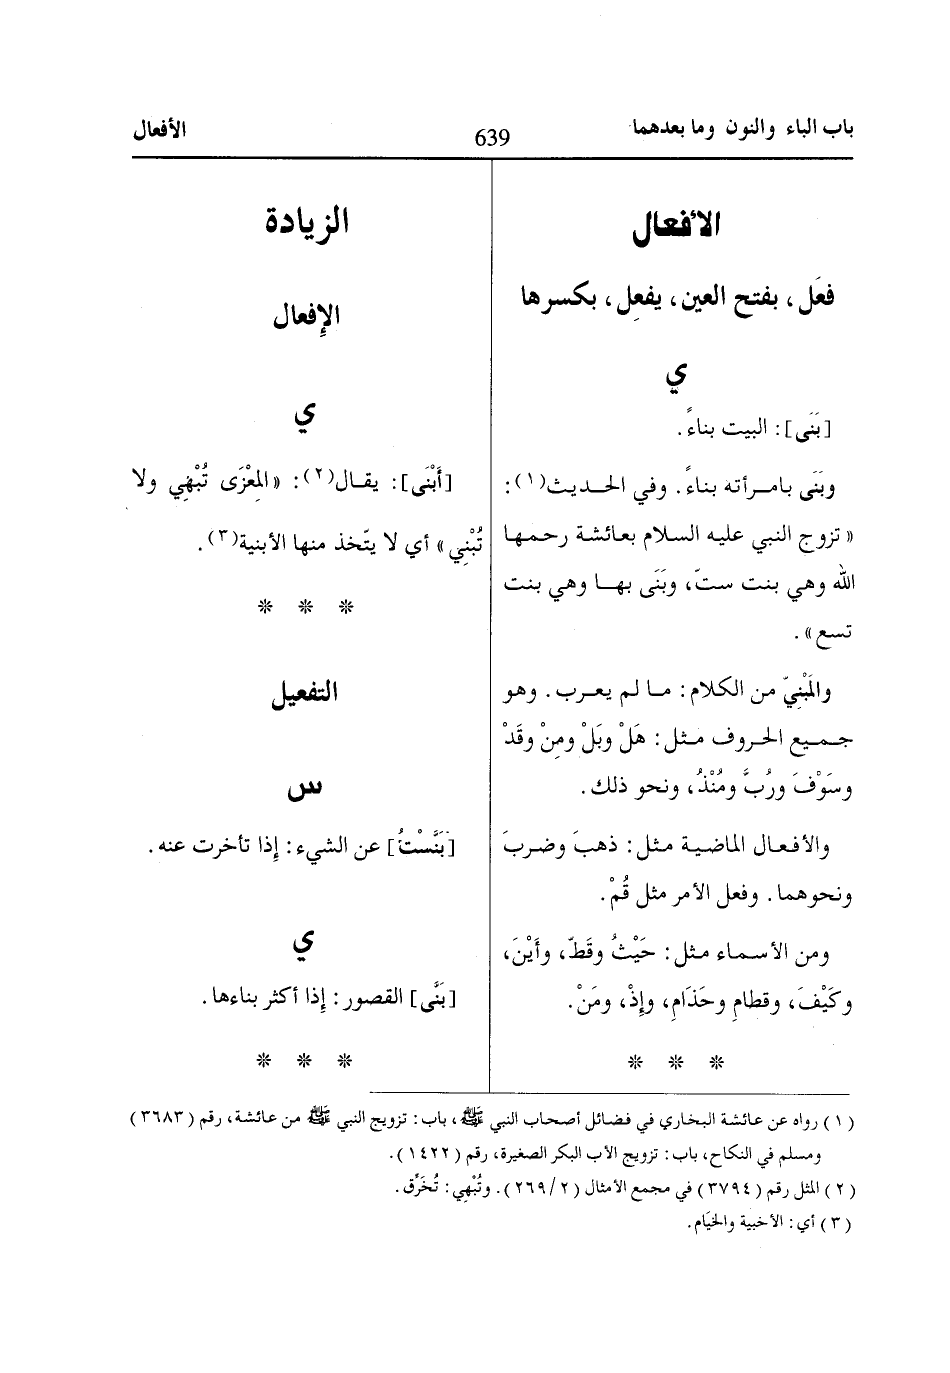 باب الباء والنون وما بعدهما
639
الأفعال
الأفعال
فعَل، بفتح العين، يفعِل، بكسرها
ي
[بَنَى]: البيت بناءً.
وبَنَى بامـرأته بناءً. وفي الحديث(١):
«تزوج النبي عليه السلام بعائشة رحمها
الله وهي بنت ستّ، وبَنَى بها وهي بنت
تسع».
والمَبْنِيّ من الكلام: ما لم يعرب. وهو
جميع الحروف مثل: هَلْ وبَلْ ومِنْ وقَدْ
وسَوْفَ ورُبَّ ومُنْذُ، ونحو ذلك.
والأفعال الماضية مثل: ذهبَ وضربَ
ونحوهما. وفعل الأمر مثل قُمْ.
ومن الأسماء مثل: حَيْثُ وقَطّ، وأَيْنَ،
وكَيْفَ، وقطامِ وحَذَامِ، وإِذْ، ومَنْ.
* * *
الزيادة
الإِفعال
ي
[أَبْنَى]: يقال(٢): «المِعْزَى تُبْهِي ولا
تُبْنِي» أي لا يتّخذ منها الأبنية(٣).
* * *
التفعيل
س
[بَنَّسْتُ] عن الشيء: إِذا تأخرت عنه.
ي
[بَنَّى] القصور: إِذا أكثر بناءها.
* * *
(١) رواه عن عائشة البخاري في فضائل أصحاب النبي ﷺ، باب: تزويج النبي ﷺ من عائشة، رقم (٣٦٨٣)
ومسلم في النكاح، باب: تزويج الأب البكر الصغيرة، رقم (١٤٢٢).
(٢) المثل رقم (٣٧٩٤) في مجمع الأمثال (٢/٢٦٩). وتُبْهِي: تُخَرِّق.
(٣) أي: الأخبية والخيَام.